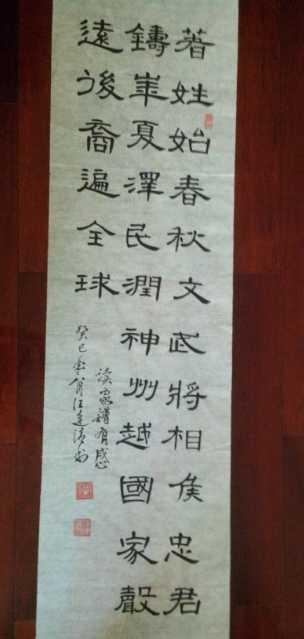 著姓始春秋文武將相侯忠君
鑄華夏澤民潤神州越國家聲
遠後裔遍全球
读家譜有感
癸巳汪